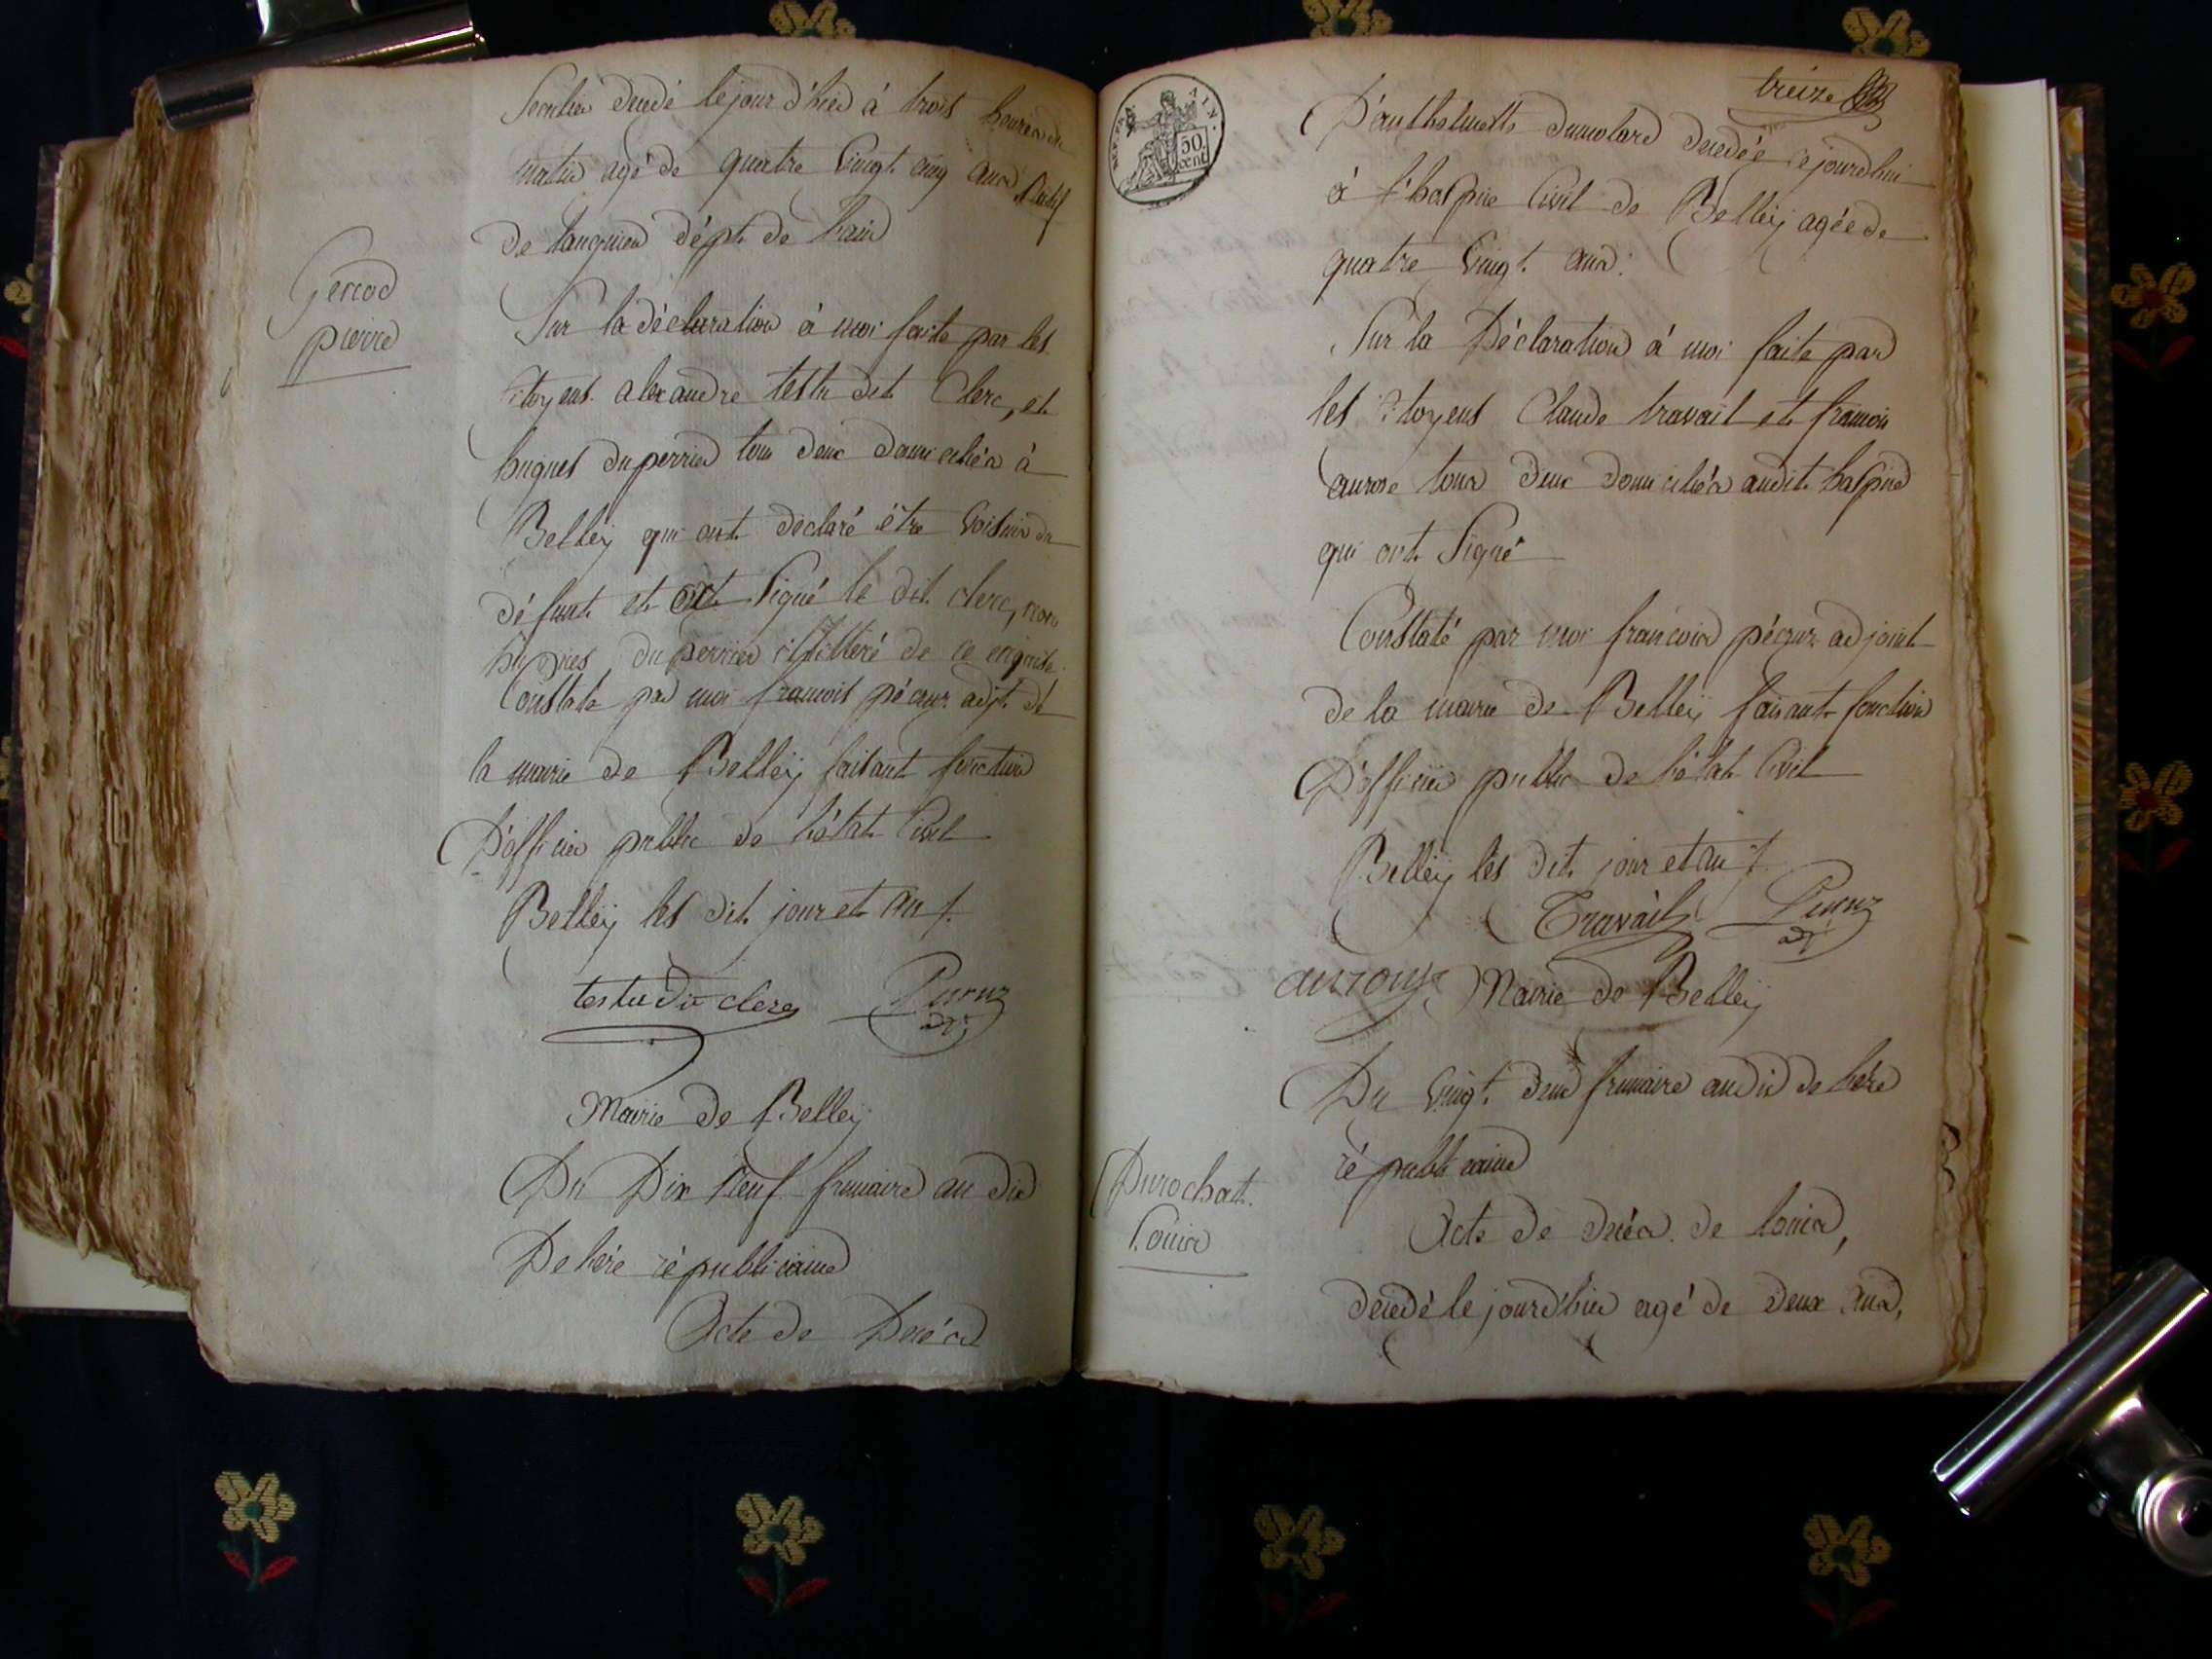 decedé le jour d'hier à trois heures du
matin agé de quatre vingt cinq ans natif
de dépt. de l'ain
pierre
Sur la déclaration à moi faite par les
citoyens alexandre testu dit Clerc, et
hugues duperrier tous deux domiciliés à
Belley qui ont déclaré être voisins du
défunt et ont signé le dit clerc, non
hugues duperrier illitéré de ce enquis
Constaté par moi francois pécruz adjt. de
la mairie de Belley faisant fonction
D'officier public de l'état Civil
Belley les dit jour et an
testu dit clerc Pecruz
adjt
Mairie de Belley
Du Dix neuf frimaire an dix
De l'ére républicaine
Acte de Decés
treize
AIN.
50
cent
D'anthelmette dumolard decedée ce jourdhui
à l'hospice Civil de Belley agée de
quatre vingt ans.
Sur la Déclaration à moi faite par
les citoyens Claude travail et francois
tous deux domiciliés audit hospice
qui ont Signé
Constaté par moi francois pécruz adjoint
de la mairie de Belley faisant fonction
D'officier public de l'état Civil
Belley les dit jour et an
Travail Pecruz
adjt
Mairie de Belley
Du vingt deux frimaire an dix de l'ére
républicaine
Durochat
Louis
Acte de decés de louis,
decedé le jour d'hier agé de deux ans,